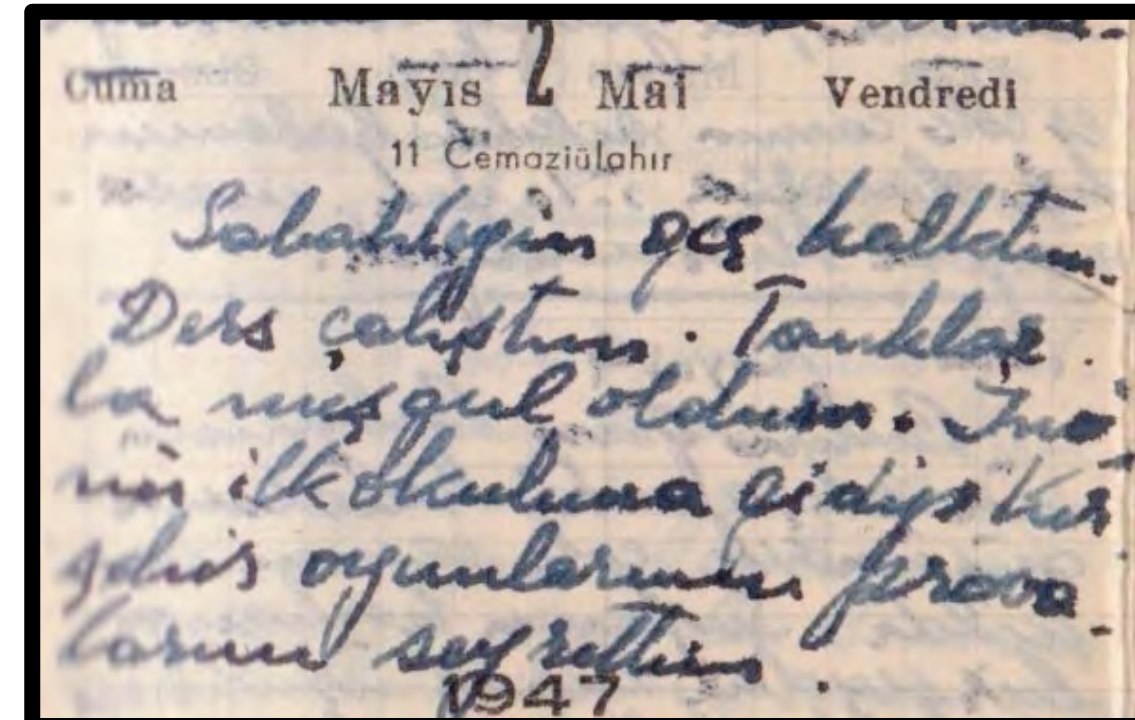 Cuma Mayıs 2 Mai Vendredi
11 Cemaziülahır
Sabahleyin geç kalktım.
Ders çalıştım. Tavuklar
la meşgul oldum. İnö
nü ilkokuluna gidip
oyunlarının prova
larını seyrettim.
1947